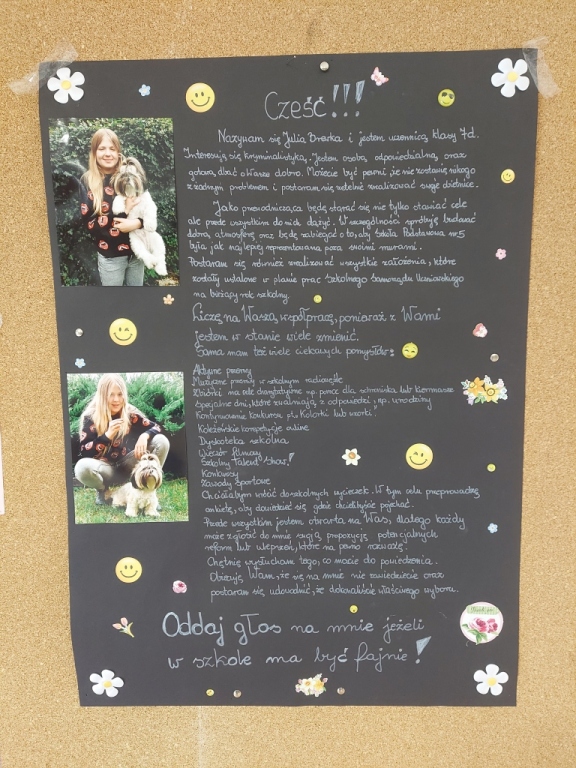 Cześć!!!
Nazywam się Julia Brerka i jestem uczennicą klasy 7d.
Interesuję się kryminalistyką. Jestem osobą odpowiedzialną, oraz
gotową dbać o Wasze dobro. Możecie być pewni, że nie zostawię nikogo
z żadnym problemem i postaram się rzetelnie zrealizować swoje dzielnice.
Jako przewodnicząca będę starać się nie tylko stawiać cele
ale przede wszystkim do nich dążyć. W szczególności spróbuję budować
dobrą atmosferę oraz będę zabiegać o to, aby Szkoła Podstawowa nr 5
była jak najlepiej reprezentowana poza swoimi murami.
Postaram się również zrealizować wszystkie założenia, które
zostały ustalone w planie prac Szkolnego Samorządu Uczniowskiego
na bieżący rok szkolny.
Liczę na Waszą współpracę, ponieważ z Wami
jestem w stanie wiele zmienić.
Sama mam też wiele ciekawych pomysłów:
Aktywne przerwy
Muzyczne przerwy w szkolnym radiowęźle
Zbiórki na cele charytatywne np. pomoc dla schroniska lub kiermasze
Specjalne dni, które zwalniają z odpowiedzi, np. urodziny
Kontynuowanie konkursu pt. Kolorki lub wzorki"
Koleżeńskie kompetycje online
Dyskoteka szkolna
Wieczór filmowy
Szkolny Talent Show!
Konkursy
Zawody Sportowe
Chciałabym wrócić do szkolnych wycieczek. W tym celu przeprowadzę
ankietę, aby dowiedzieć się gdzie chcielibyście pojechać.
Przede wszystkim jestem otwarta na Was, dlatego każdy
może zgłosić do mnie swoją propozycję potencjalnych
reform lub ulepszeń, które na pewno rozważę.
Chętnie wysłucham tego, co macie do powiedzenia.
Obiecuję Wam, że się na mnie nie zawiedziecie oraz
postaram się udowodnić, że dokonaliście właściwego wyboru.
Oddaj głos na mnie jeżeli
w szkole ma być fajnie!